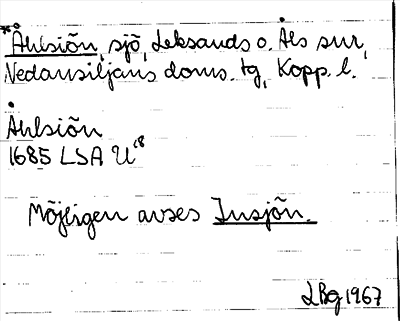 *Åhlsiön, sjö, Leksands o. Åls snr,
Nedansiljans doms. tg, Kopp. l.
Åhlsiön
1685 LSA U 18
Möjligen avses Insjön.
LBg 1967